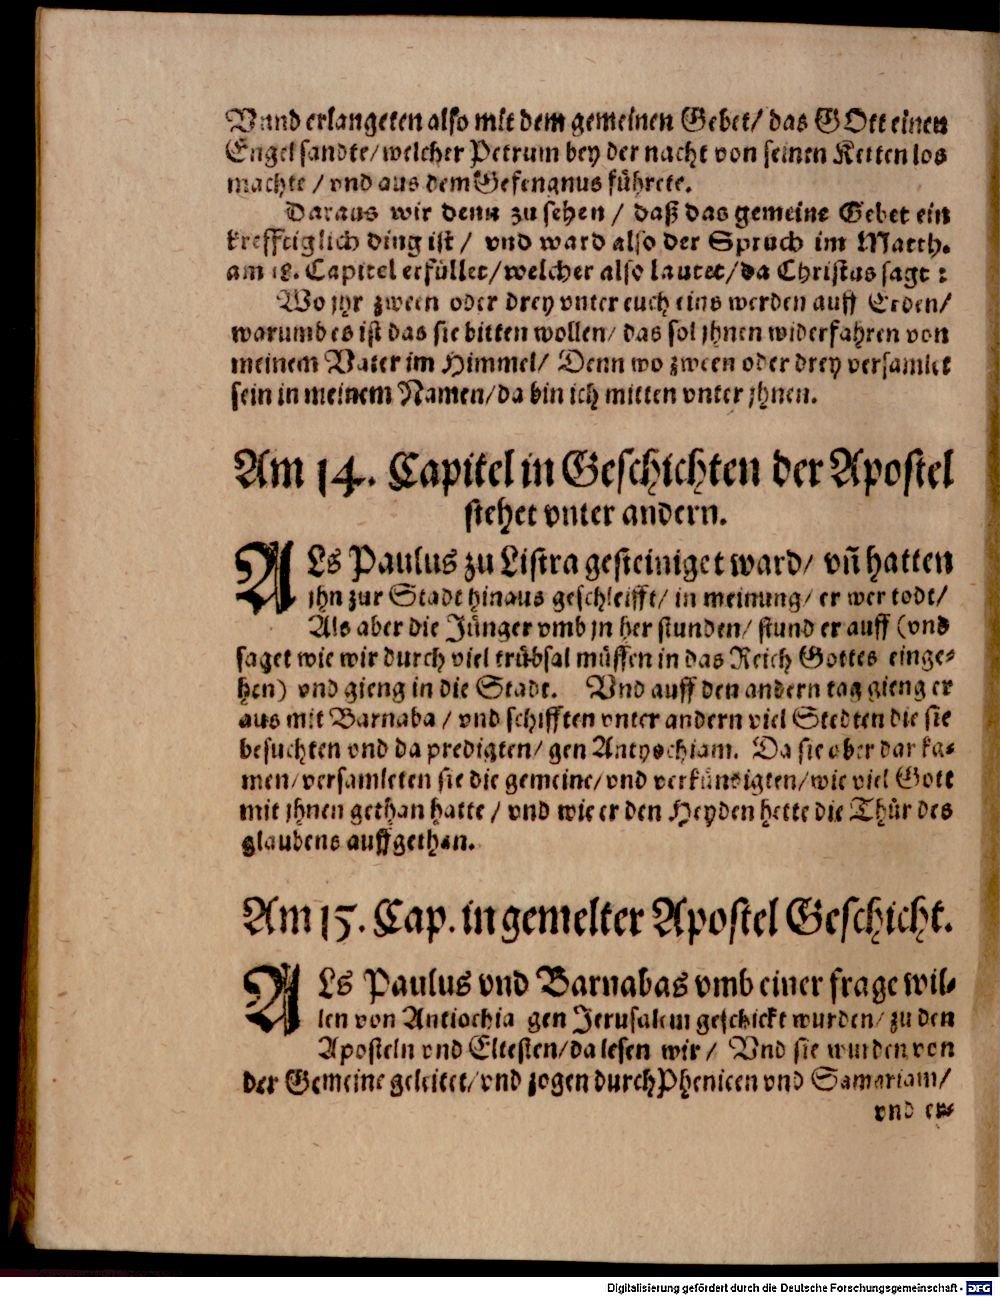 Vnnd erlangeten also mit dem gemeinen Gebet/ das GOtt einen
Engel sandte/welcher Petrum bey der nacht von seinen Ketten los
machte / vnd aus dem Gefengnus führete.
Daraus wir denn zu sehen / daß das gemeine Gebet ein
krefftiglich ding ist / vnd ward also der Spruch im Matth.
am 18. Capitel erfüllet/welcher also lautet/da Christus sagt :
Wo jhr zween oder drey vnter euch eins werden auff Erden/
warumb es ist das sie bitten wollen/ das sol jhnen widerfahren von
meinem Vater im Himmel/ Denn wo zween oder drey versamlet
sein in meinem Namen/da bin ich mitten vnter jhnen.
Am 14. Capitel in Geschichten der Apostel
stehet vnter andern.
ALs Paulus zu Listra gesteiniget ward/ vñ hatten
jhn zur Stadt hinaus geschleifft/ in meinung/ er wer todt/
Als aber die Jünger vmb jn her stunden/ stund er auff (vnd
saget wie wir durch viel trübsal müssen in das Reich Gottes einge-
hen) vnd gieng in die Stadt. Vnd auff den andern tag gieng er
aus mit Barnaba / vnd schifften vnter andern viel Stedten die sie
besuchten vnd da predigten/ gen Antyochiam. Da sie aber dar ka-
men/versamleten sie die gemeine/vnd verkündigten/wie viel Gott
mit jhnen gethan hatte / vnd wie er den Heyden hette die Thür des
glaubens auffgethan.
Am 15. Cap. in gemelter Apostel Geschicht.
ALs Paulus vnd Barnabas vmb einer frage wil-
len von Antiochia gen Jerusalem geschickt wurden/ zu den
Aposteln vnd Eltesten/da lesen wir / Vnd sie wurden von
der Gemeine geleitet/vnd zogen durch Phenicen vnd Samariam/
vnd er-
Digitalisierung gefördert durch die Deutsche Forschungsgemeinschaft - DFG